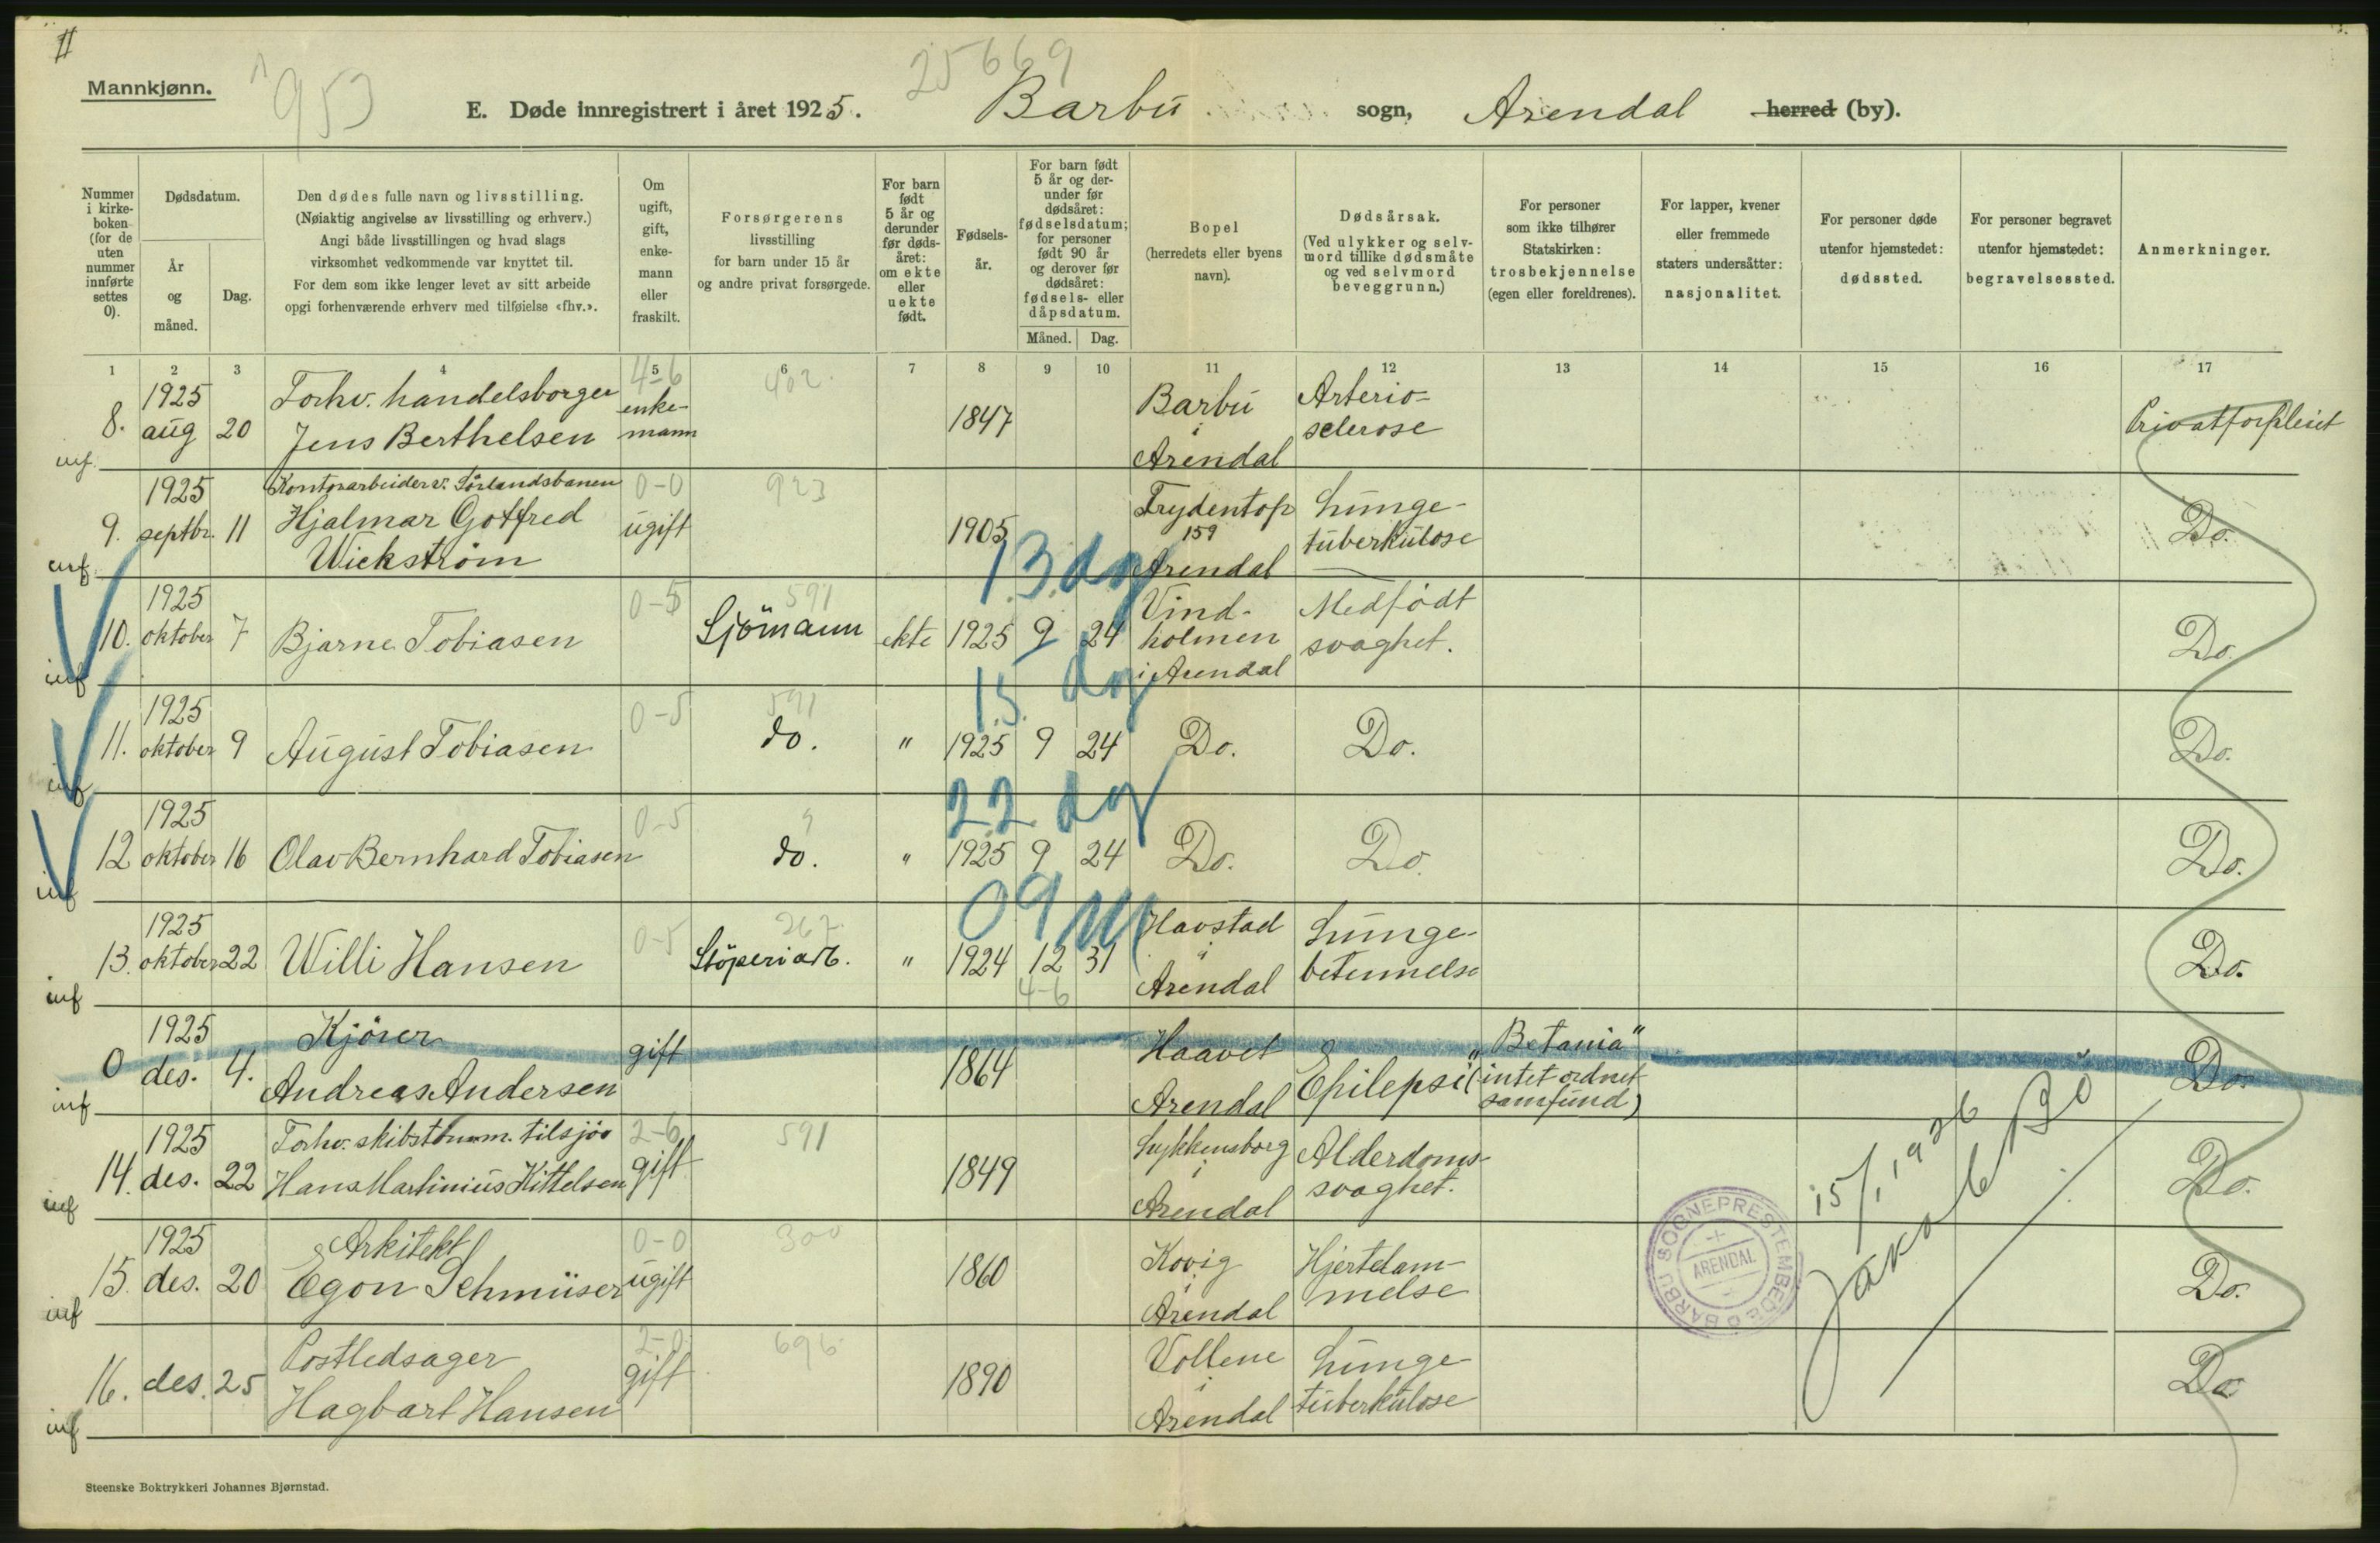 II
Mannkjønn.
953
25669
E. Døde innregistrert i året 1925. Barbu sogn, Arendal herred (by).
Nummer i kirkeboken (for de uten nummer innførte settes 0).
Dødsdatum.
År og måned.
Dag.
Den dødes fulle navn og livsstilling.
(Nøiaktig angivelse av livsstilling og erhverv.)
Angi både livsstillingen og hvad slags
virksomhet vedkommende var knyttet til.
For dem som ikke lenger levet av sitt arbeide
opgi forhenværende erhverv med tilføielse «fhv.».
Om ugift, gift, enkemann eller fraskilt.
Forsørgerens
livsstilling
for barn under 15 år
og andre privat forsørgede.
For barn født 5 år og derunder før dødsåret: om ekte eller uekte født.
Fødselsår.
For barn født 5 år og derunder før dødsåret: fødselsdatum; for personer født 90 år og derover før dødsåret: fødsels- eller dåpsdatum.
Måned. Dag.
Bopel
(herredets eller byens
navn).
Dødsårsak.
(Ved ulykker og selvmord tillike dødsmåte og ved selvmord beveggrunn.)
For personer
som ikke tilhører
Statskirken:
trosbekjennelse
(egen eller foreldrenes).
For lapper, kvener
eller fremmede
staters undersåtter:
nasjonalitet.
For personer døde
utenfor hjemstedet:
dødssted.
For personer begravet
utenfor hjemstedet:
begravelsessted.
Anmerkninger.
1 2 3 4 5 6 7 8 9 10 11 12 13 14 15 16 17
8. 1925 aug 20 Forhv. handelsborger Jens Berthelsen 4-6 enkemann 402. 1847 Barbu i Arendal Arteriosclerose Privatforpleiet
9. 1925 septbr. 11 Kontorarbeider v. Sörlandsbanen Hjalmar Gotfred Wickström 0-0 ugift 923 1905 Frydentop 159 Arendal Lungetuberkulose Do.
13. dag
10. 1925 oktober 7 Bjarne Tobiasen 0-5 591 Sjömann ekte 1925 9 24 Vindholmen i Arendal Medfödt svaghet. Do.
15. dag
11. 1925 oktober 9 August Tobiasen 0-5 591 do. " 1925 9 24 Do. Do. Do.
22 dag
12 1925 oktober 16 Olav Bernhard Tobiasen 0-5 do. " 1925 9 24 Do. Do. Do.
09 M
13. 1925 oktober 22 Willi Hansen 0-5 267. Stöperiarb. " 1924 12 31 Havstad i Arendal Lungebetennelse Do.
4-6
0 1925 des. 4. Kjörer Andreas Andersen gift 1864 Haavet Arendal Epilepsi "Betania" (intet ordnet samfund) Do.
14. 1925 des. 22 Forhv. skibstömm. tilsjös Hans Martinius Kittelsen 2-6 gift 591 1849 Lykkensborg i Arendal Alderdomssvaghet. Do.
15. 1925 des. 20 Arkitekt Egon Schmüser 0-0 ugift 300 1860 Kovig i Arendal Hjertelammelse Do.
16. des. 25 Postledsager Hagbart Hansen 2-0 gift 696. 1890 Vollene i Arendal Lungetuberkulose Do
15/1 1926
Jakob Bö
BARBU SOGNEPRESTEMBEDE
ARENDAL
Steenske Boktrykkeri Johannes Bjørnstad.